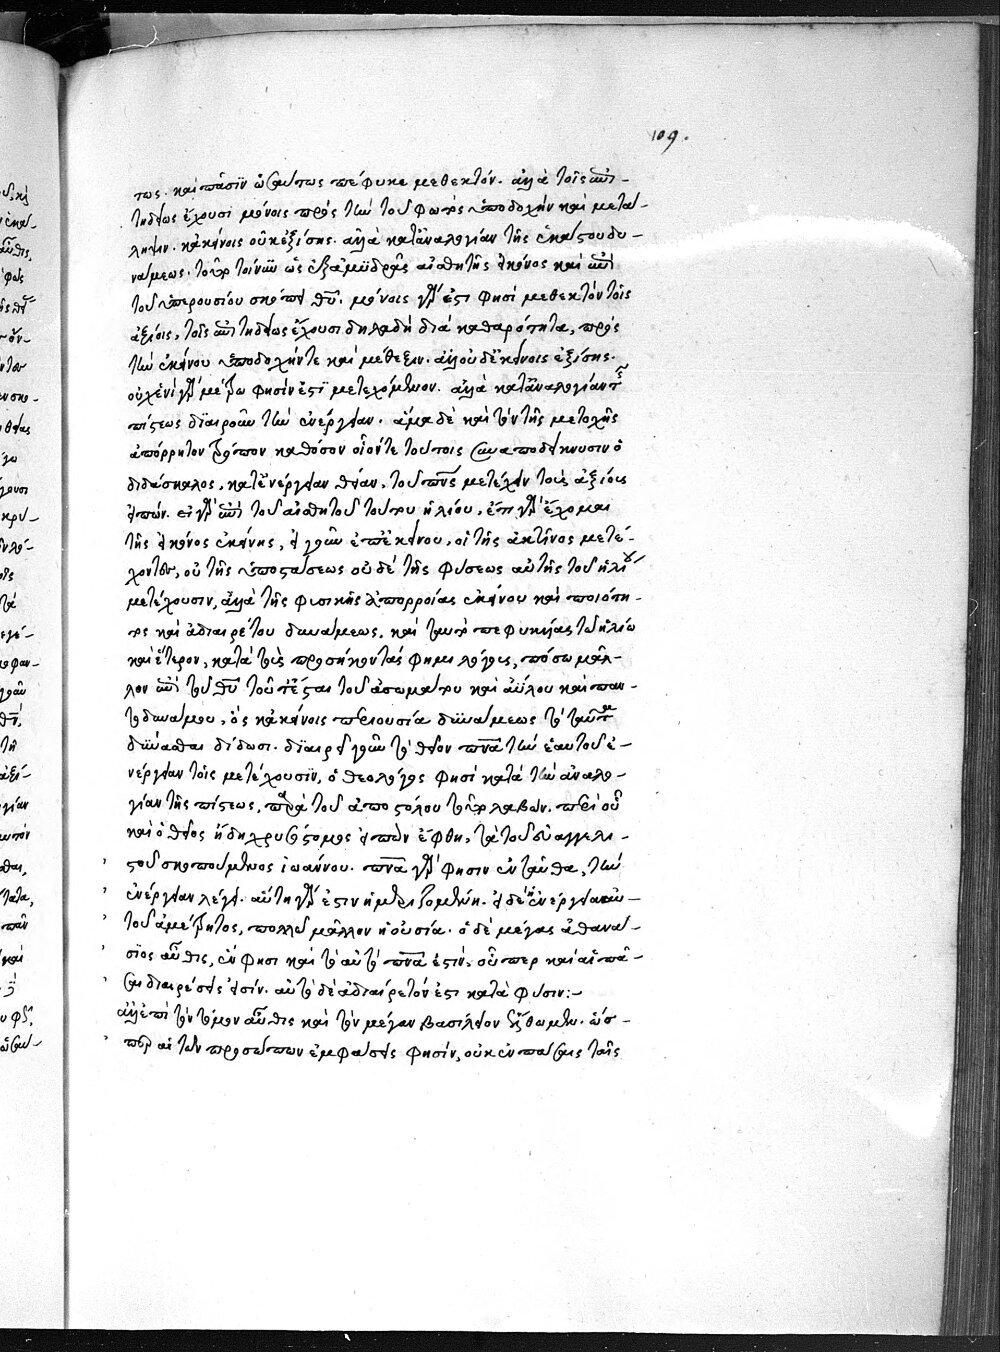 109.
τως. καὶ πᾶσϊν ὡσαύτως πέφυκε μεθεκτόν. ἀλλὰ τοῖς ἐπι-
τηδείως ἔχουσι μόνοις πρὸς τὴν τοῦ φωτὸς ὑποδοχὴν καὶ μετά-
ληψιν. κἀκείνοις οὐκ ἐξίσης. ἀλλὰ κατ' ἀναλογίαν τῆς ἑκάστου δυ-
νάμεως. τοῦτο τοίνυν ὡς ἐξ ἀμυδρᾶς αἰσθητῆς εἰκόνος καὶ ἐπὶ
τοῦ ὑπερουσίου σκόπει θεοῦ. μόνοις γάρ ἐστι φησὶ μεθεκτὸν τοῖς
ἀξίοις, τοῖς ἐπιτηδείως ἔχουσι δηλαδὴ διὰ καθαρότητα, πρὸς
τὴν ἐκείνου ὑποδοχήν τε καὶ μέθεξιν. ἀλλ' οὐδὲ κείνοις ἐξίσης.
οὐχ ἑνὶ γὰρ μέτρω φησίν ἐστϊ μετεχόμενον. ἀλλὰ κατ' ἀναλογίαν τῆς
πίστεως διαιροῦν τὴν ἐνέργειαν. ἅμα δὲ καὶ τὸν τῆς μετοχῆς
ἀπόρρητον τρόπον καθόσον οἷόν τε τούτοις συναποδείκνυσιν ὁ
διδάσκαλος, κατ' ἐνέργειαν θείαν, τοῦ πνεύματος μετέχειν τοὺς ἀξίους
εἰπών. εἰ γὰρ ἐπὶ τοῦ αἰσθητοῦ τούτου ἡλίου, ἔτι γὰρ ἔχομαι
τῆς εἰκόνος ἐκείνης, εἰ γοῦν ἐπ' ἐκείνου, οἱ τῆς ἀκτῖνος μετέ-
χοντες, οὐ τῆς ὑποστάσεως οὐδὲ τῆς φύσεως αὐτῆς τοῦ ἡλίου
μετέχουσιν, ἀλλὰ τῆς φυσικῆς ἀπορροίας ἐκείνου καὶ ποιότη-
τος καὶ ἀδιαιρέτου δυνάμεως, καὶ ταῦτα πεφυκυίας τῶ ἡλίω
καὶ ἕτερον, κατὰ τοὺς προσήκοντάς φημι λόγους, πόσω μᾶλ-
λον ἐπὶ τοῦ θεοῦ τοῦτ' ἔσται τοῦ ἀσωμάτου καὶ ἀΰλου καὶ παν-
τοδυνάμου, ὃς κἀκείνοις περιουσία δυνάμεως τὸ ταῦτα
δύνασθαι δίδωσι. διαιρεῖ γοῦν τὸ θεῖον πνεῦμα τὴν ἑαυτοῦ ἐ-
νέργειαν τοῖς μετέχουσϊν, ὁ θεολόγος φησὶ κατὰ τὴν ἀναλο-
γίαν τῆς πίστεως, παρὰ τοῦ ἀποστόλου τοῦτο λαβών. περὶ οὗ
καὶ ὁ θεῖος ἤδη χρυσόστομος εἰπὼν ἔφθη, τὰ τοῦ εὐαγγελι-
στοῦ σκοπούμενος ἰωάννου. πνεῦμα γάρ φησιν ἐνταῦθα, τὴν
ἐνέργειαν λέγει. αὕτη γάρ ἐστιν ἡ μεριζομένη. εἰ δὲ ἡ ἐνέργεια αὐ-
τοῦ ἀμέτρητος, πολλῶ μᾶλλον ἡ οὐσία. ὁ δὲ μέγας ἀθανά-
σϊος αὖθις, ἕν φησι καὶ τὸ αὐτὸ πνεῦμά ἐστιν, οὗπερ καὶ αἱ πᾶ-
σαι διαιρέσεις εἰσίν. αὐτὸ δὲ ἀδιαίρετόν ἐστι κατὰ φύσιν:-
ἀλλ' ἐπὶ τὸν τόμον αὖθις καὶ τὸν μέγαν βασίλειον ἔλθωμεν. ὥσ-
περ αἱ τῶν προσώπων ἐμφάσεις φησίν, οὐκ ἐν πάσαις ταῖς